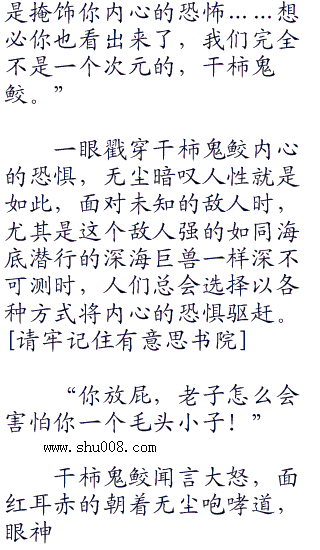 是掩饰你内心的恐怖……想
必你也看出来了，我们完全
不是一个次元的，干柿鬼
鲛。”
一眼戳穿干柿鬼鲛内心
的恐惧，无尘暗叹人性就是
如此，面对未知的敌人时，
尤其是这个敌人强的如同海
底潜行的深海巨兽一样深不
可测时，人们总会选择以各
种方式将内心的恐惧驱赶。
[请牢记住有意思书院]
“你放屁，老子怎么会
害怕你一个毛头小子！”
www.shu008.com
干柿鬼鲛闻言大怒，面
红耳赤的朝着无尘咆哮道，
眼神